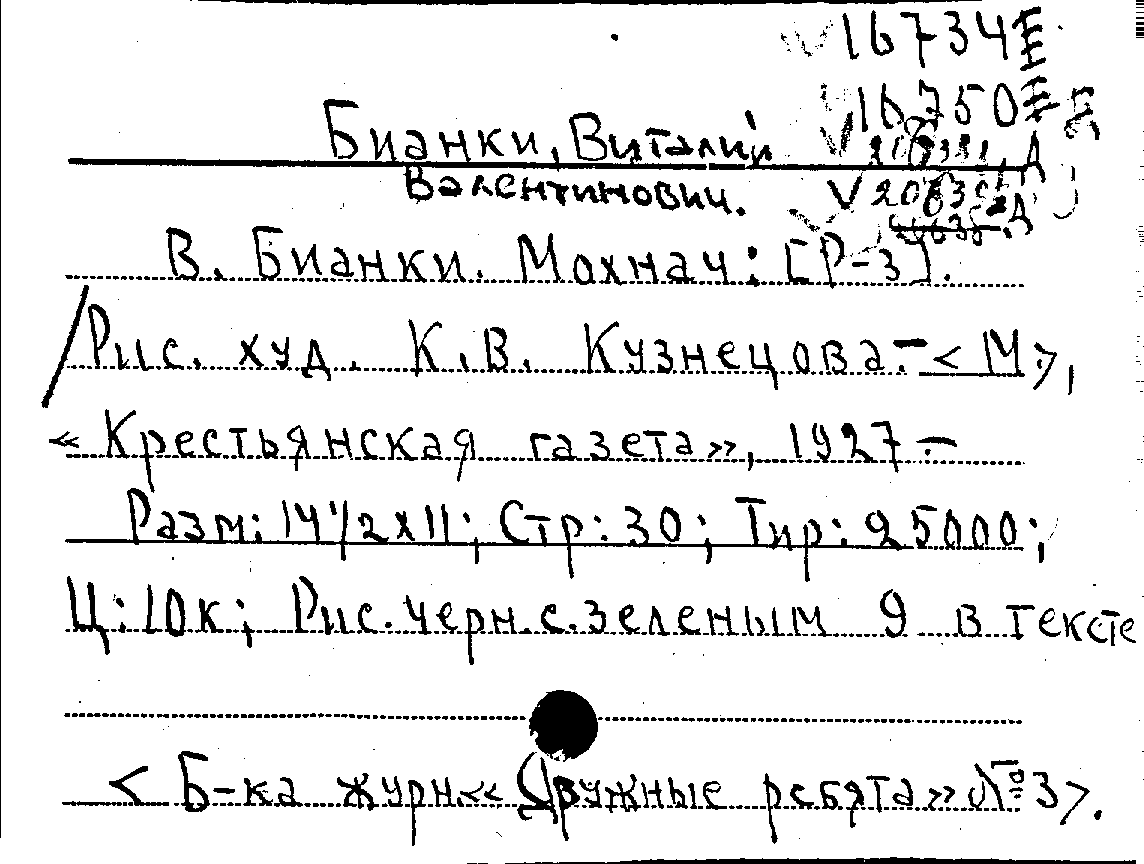 16734 Е
16750 Е
Бианки, Виталий
Валентинович.
В. Бианки. Мохнач: [Р-з].
/Рис. худ. К.В. Кузнецова.- <М>,
«Крестьянская газета», 1927 –
Разм: 14 1/2 х 11; Стр: 30; Тир: 25000;
Ц: 10к; Рис. черн. с. зеленым 9 в тексте
<Б-ка журн. «Дружные ребята» №3>.